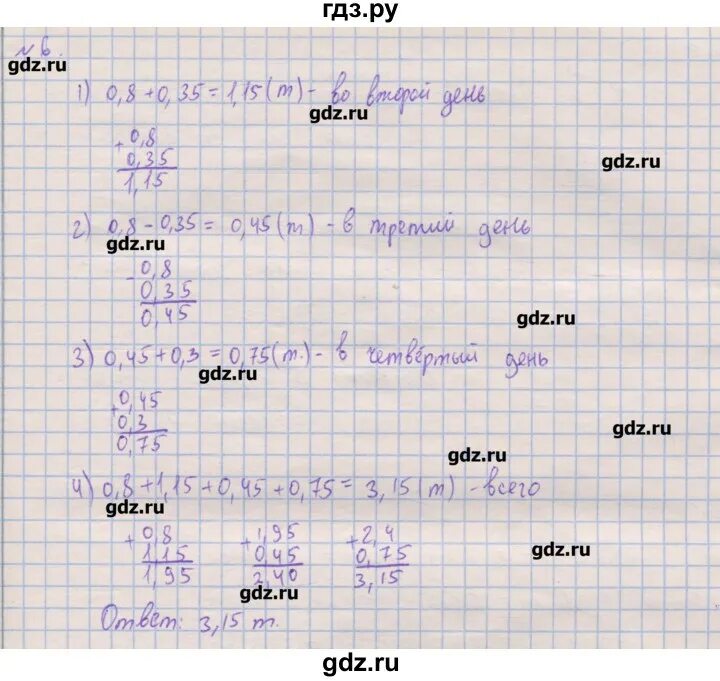 гдз.ру
№6.
gdz.ru
1) 0,8 + 0,35 = 1,15 (т) - во второй день
gdz.ru
+ 0,8
0,35
1,15
gdz.ru
2) 0,8 - 0,35 = 0,45 (т) - в третий день
gdz.ru
- 0,8
0,35
0,45
gdz.ru
3) 0,45 + 0,3 = 0,75 (т.) - в четвёртый день
gdz.ru
+ 0,45
0,3
0,75
gdz.ru
gdz.ru
4) 0,8 + 1,15 + 0,45 + 0,75 = 3,15 (т) - всего
gdz.ru
+ 0,8 + 1,95 + 2,4
1,15 0,45 0,75
1,95 2,40 3,15
gdz.ru
gdz.ru
Ответ: 3,15 т.
gdz.ru